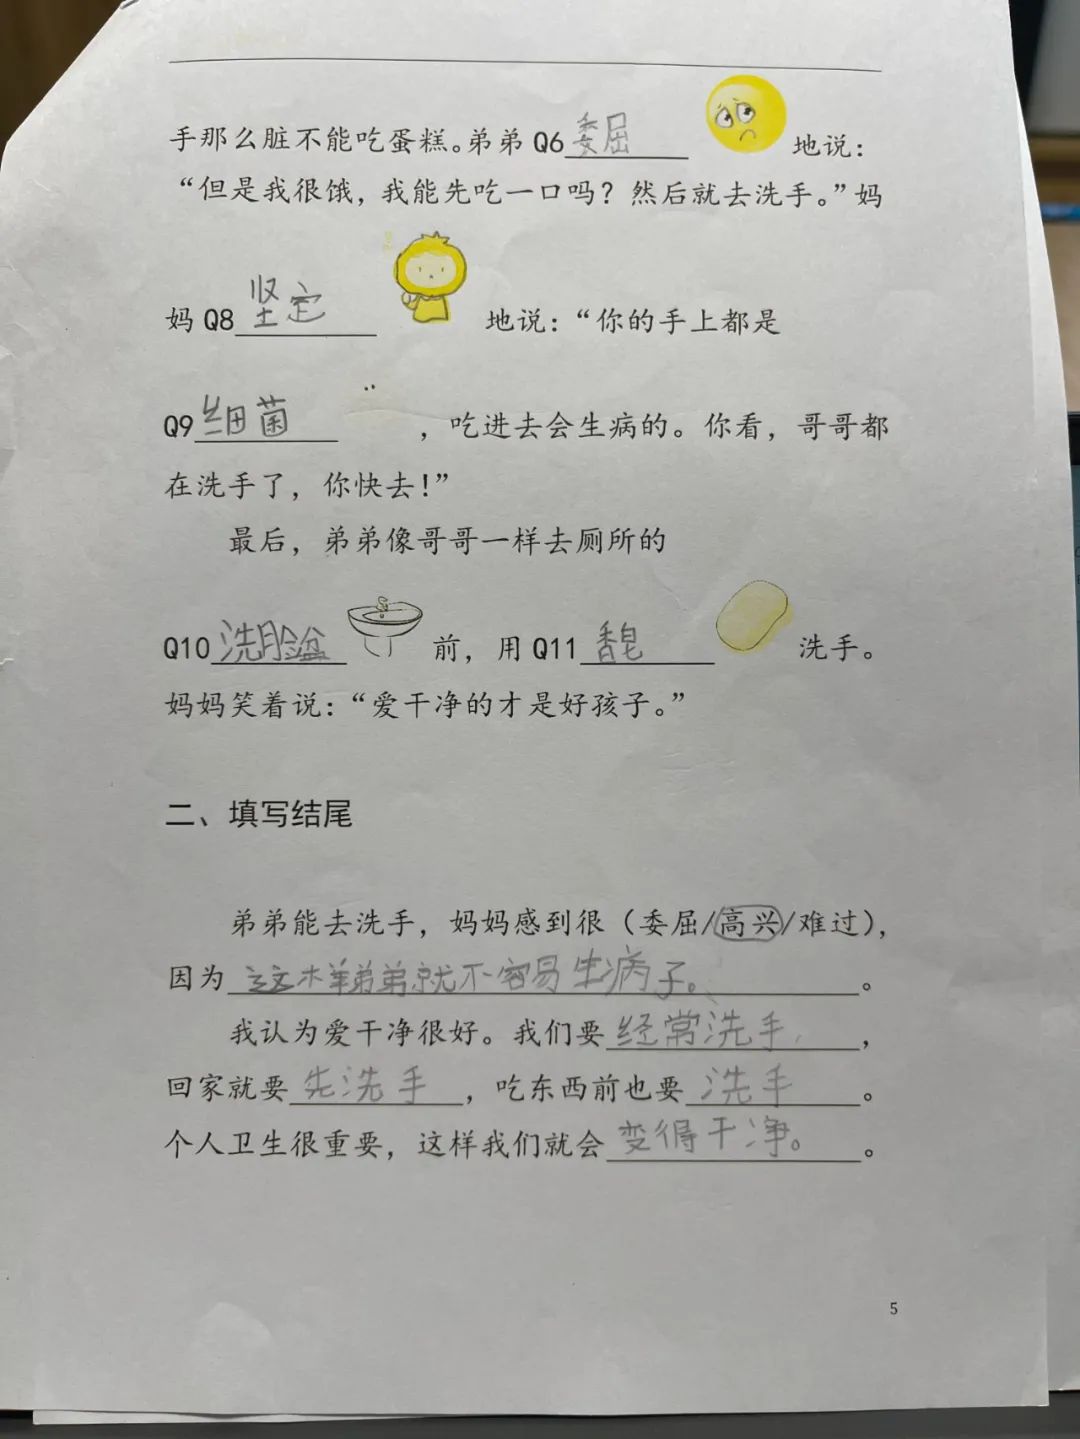 手那么脏不能吃蛋糕。弟弟 Q6委屈 地说：
“但是我很饿，我能先吃一口吗？然后就去洗手。”妈
妈 Q8坚定 地说：“你的手上都是
Q9细菌 ，吃进去会生病的。你看，哥哥都
在洗手了，你快去！”
最后，弟弟像哥哥一样去厕所的
Q10洗脸盆 前，用 Q11香皂 洗手。
妈妈笑着说：“爱干净的才是好孩子。”
二、填写结尾
弟弟能去洗手，妈妈感到很（委屈/高兴/难过），
因为这样弟弟就不容易生病了。。
我认为爱干净很好。我们要经常洗手，
回家就要先洗手，吃东西前也要洗手。
个人卫生很重要，这样我们就会变得干净。。
5